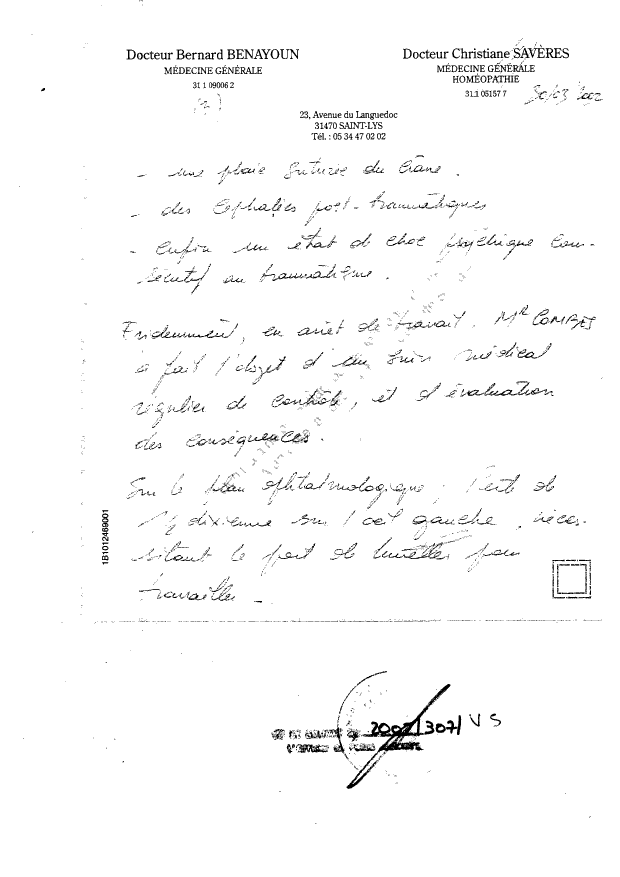 Docteur Bernard BENAYOUN
MÉDECINE GÉNÉRALE
31 1 09006 2
Docteur Christiane SAVÈRES
MÉDECINE GÉNÉRALE
HOMÉOPATHIE
31.1 05157 7
30/03 2002
23, Avenue du Languedoc
31470 SAINT-LYS
Tél. : 05 34 47 02 02
- une plaie suturée du crâne.
- des céphalées post-traumatiques
- enfin un état de choc psychique con-
sécutif au traumatisme.
Evidemment, en arrêt de travail. Mr COMBES
a fait l'objet d'un suivi médical
régulier de contrôle, et d'évaluation
des conséquences.
Sur le plan ophtalmologique, Perte de
dixième sur l'oeil gauche, néces-
sitant le port de lunettes pour
travailler -
1B1012469001
2002/307/VS